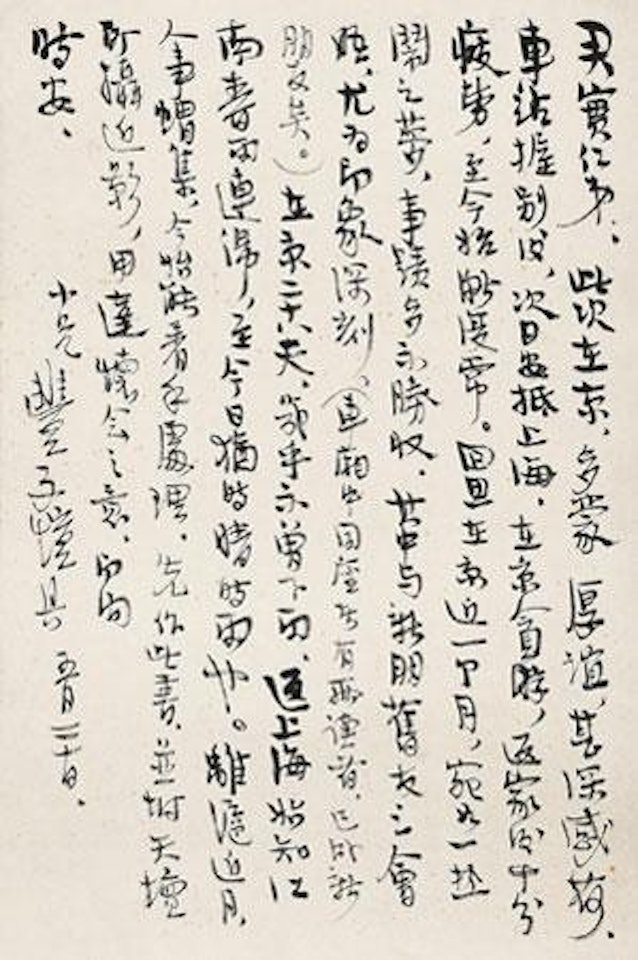 實仁弟、此次在京、多蒙厚誼、甚深感荷、
車站握別後、次日安抵上海、在京貪游，返家後十分
疲勞，至今始漸復常。回思在京近一个月，宛如一
鬧之夢，事蹟多不勝收，其中與新朋舊友之會
晤，尤為印象深刻、（車廂中同座有讀者，已新
朋友矣。）在京二十八天，幾乎不曾下雨、返上海始知江
南春雨連綿，至今日猶時晴時雨也。離滬近月，
人事蝟集，今始能着手處理。先作此書，並附天壇
所攝近影，用達懷念之意，即問
時安、
小兄豐子愷具 五月二十日、